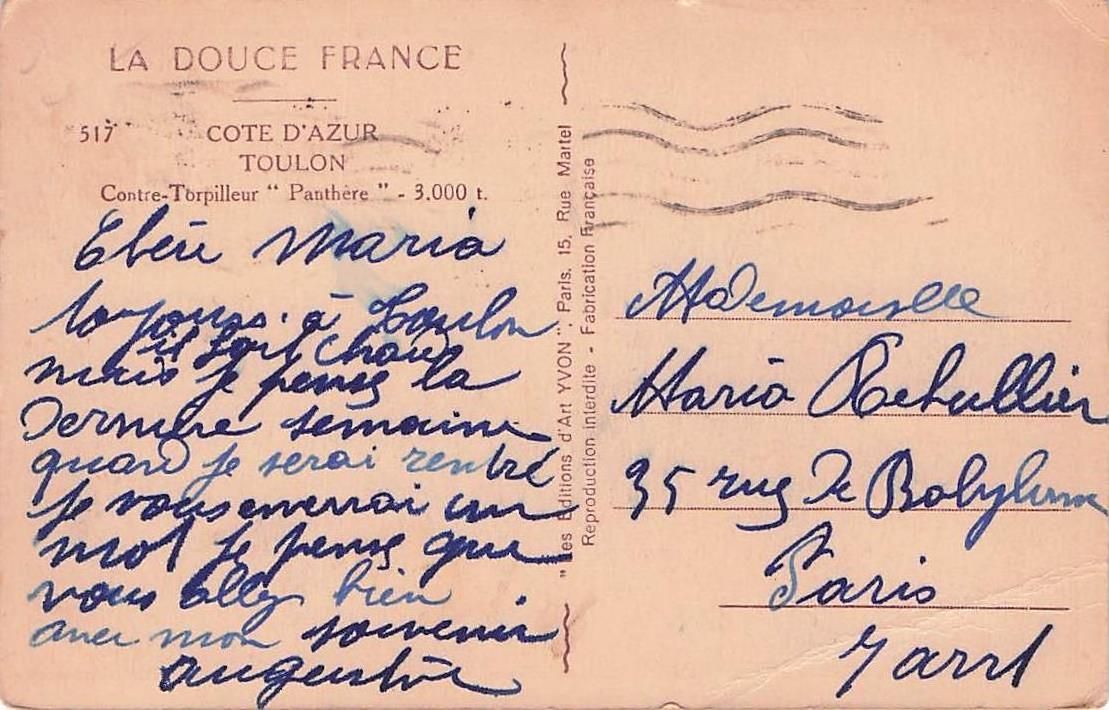 LA DOUCE FRANCE
517 COTE D'AZUR
TOULON
Contre-Torpilleur “ Panthère ” - 3.000 t.
Chère Maria
toujours à Toulon
il fait chaud
mais je pense la
dernière semaine
quand je serai rentré
je vous enverrai un
mot je pense que
vous allez bien
avec mon souvenir
"Les Editions d'Art YVON", Paris, 15, Rue Martel
Reproduction Interdite - Fabrication Française
Mademoiselle
Maria
35 rue de Babylone
Paris
7 arrt